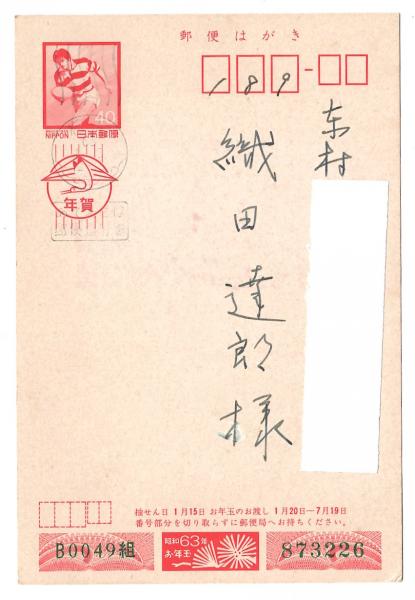 郵便はがき
40
NIPPON 日本郵便
年賀
189
东村
織田達郎様
抽せん日 1月15日 お年玉のお渡し 1月20日―7月19日
番号部分を切り取らずに郵便局へお持ちください。
B0049組
昭和63年
お年玉
873226